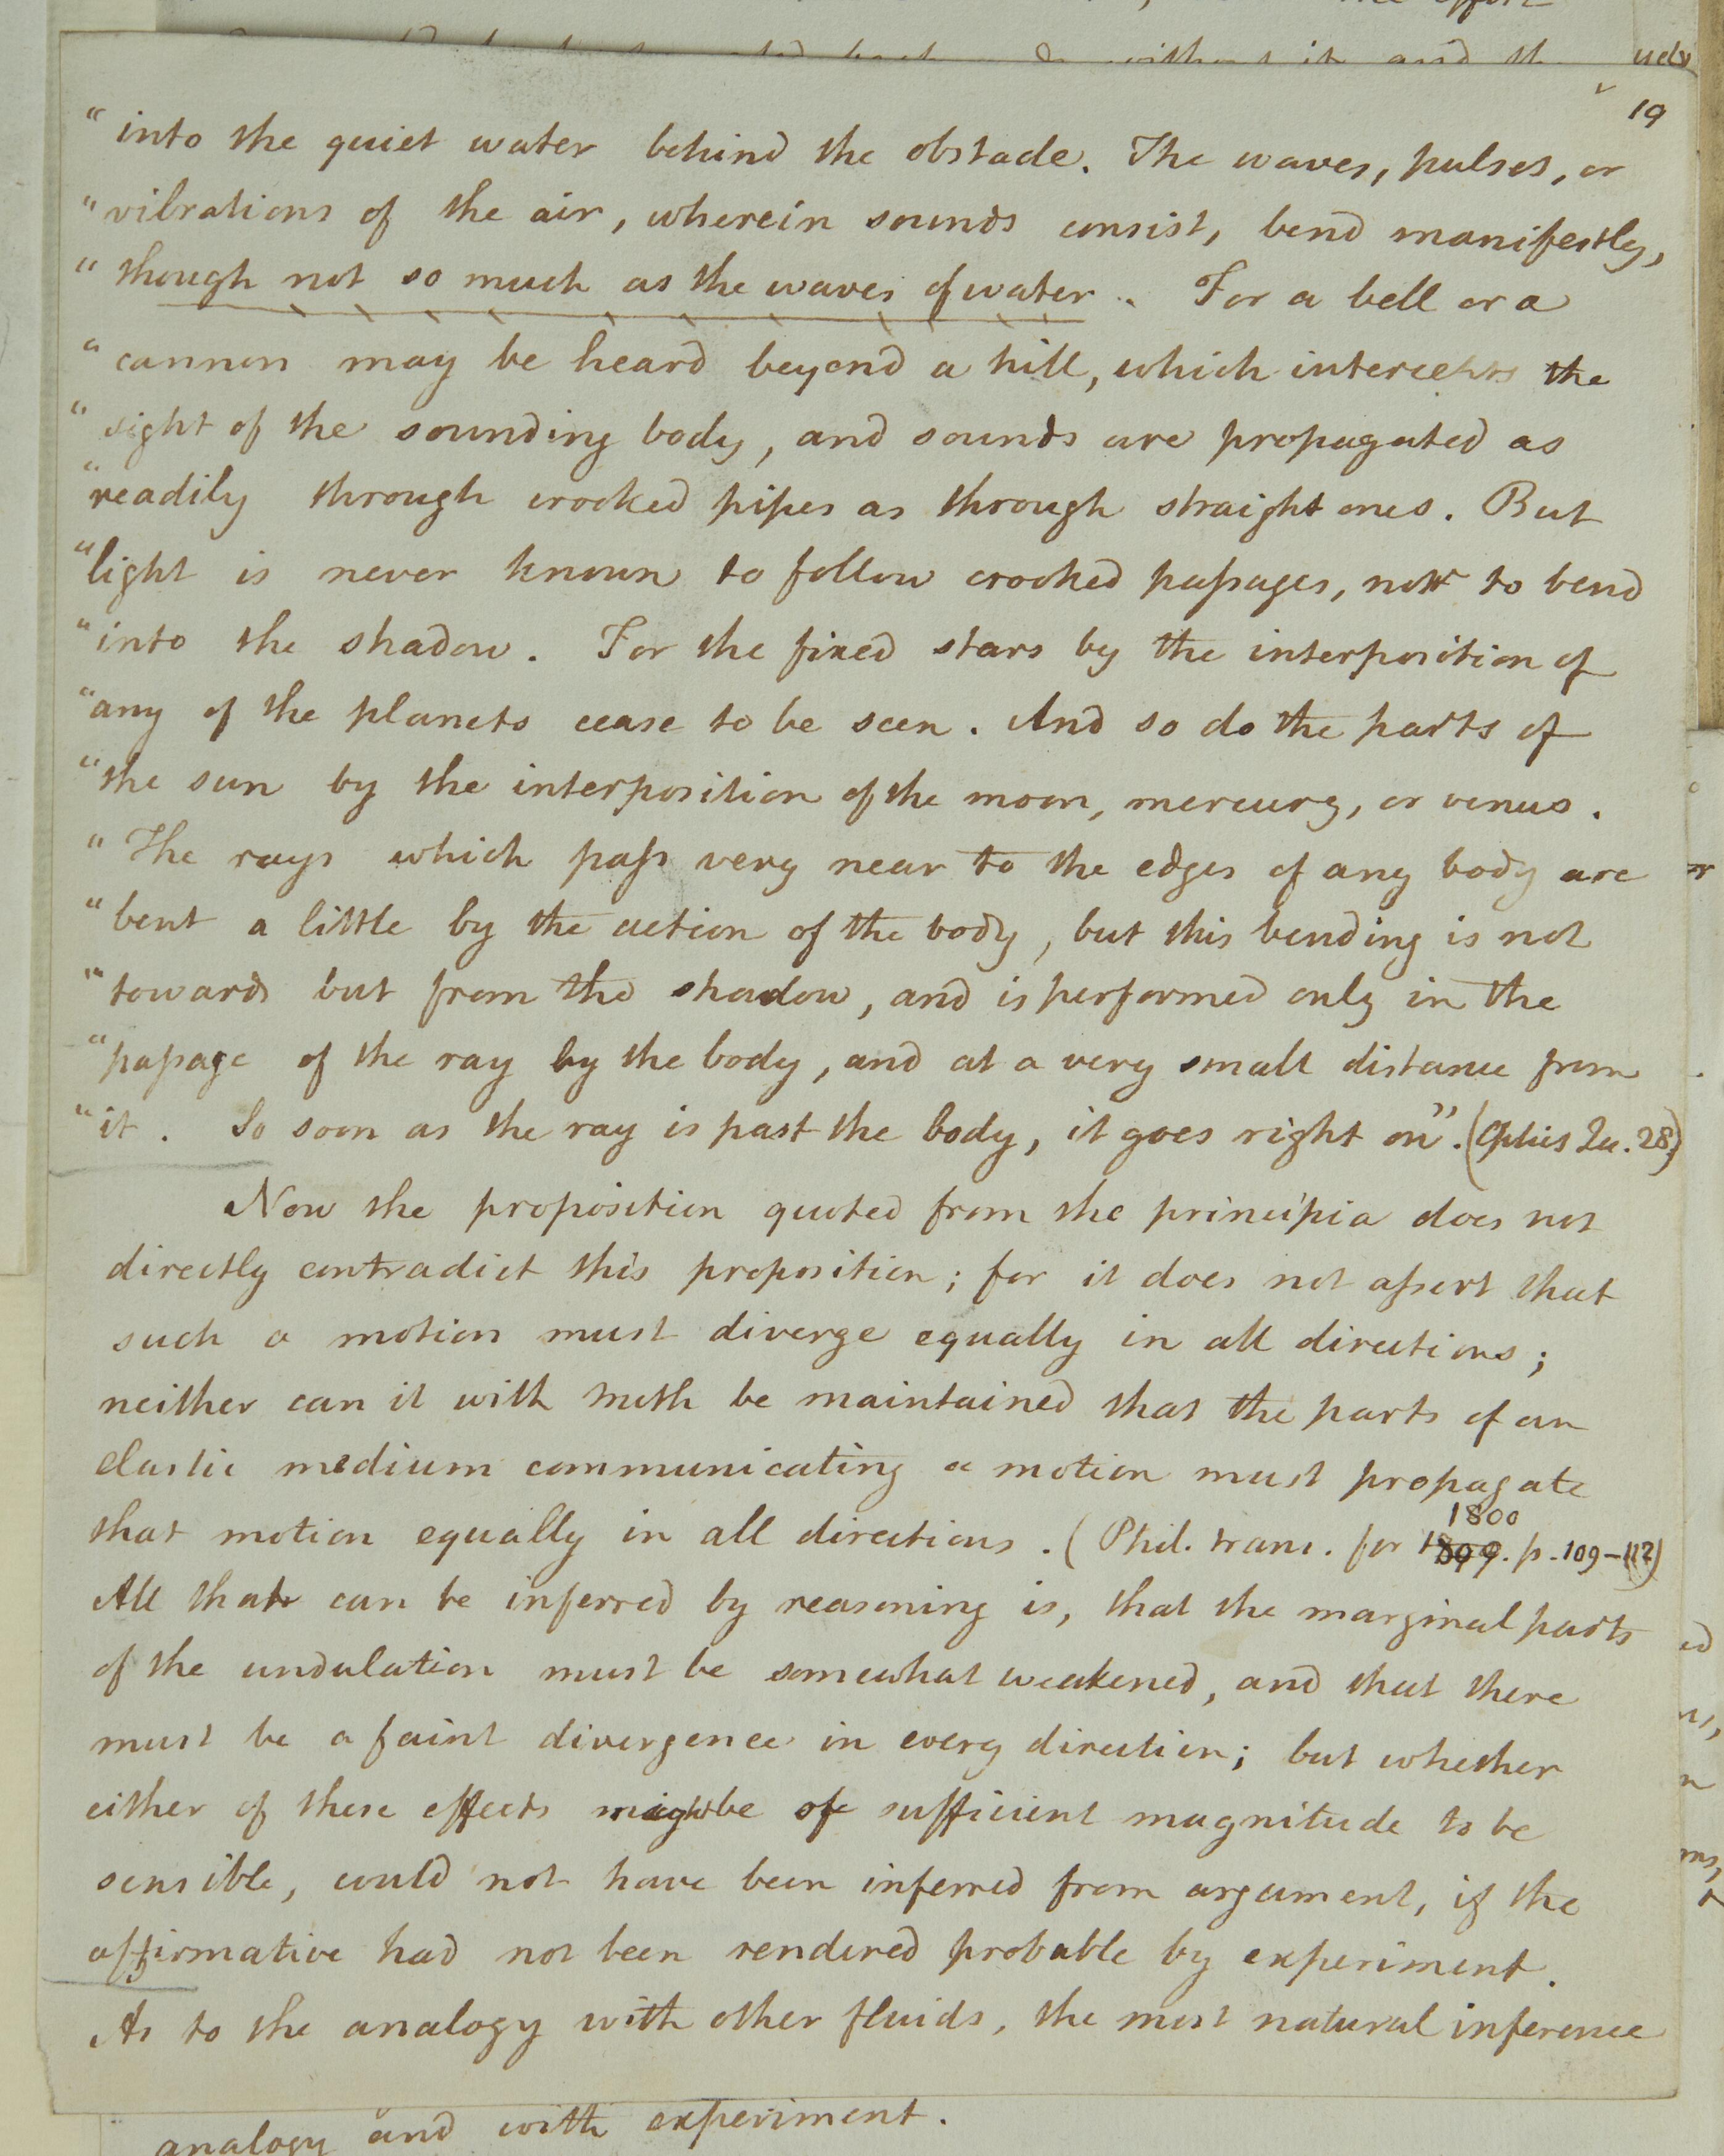 19
“ into the quiet water behind the obstacle. The waves, pulses, or
“ vibrations of the air, wherein sounds consist, bend manifestly,
“ though not so much as the waves of water. For a bell or a
“ cannon may be heard beyond a hill, which intercepts the
“ sight of the sounding body, and sounds are propagated as
“ readily through crooked pipes as through straight ones. But
“ light is never known to follow crooked paſsages, nor to bend
“ into the shadow. For the fixed stars by the interposition of
“ any of the planets cease to be seen. And so do the parts of
“ the sun by the interposition of the moon, mercury, or venus.
“ The rays which paſs very near to the edges of any body are
“ bent a little by the action of the body, but this bending is not
“ towards but from the shadow, and is performed only in the
“ paſsage of the ray by the body, and at a very small distance from
“ it. So soon as the ray is past the body, it goes right on”. (Optics Qu. 28)
Now the proposition quoted from the principia does not
directly contradict this proposition; for it does not aſsert that
such a motion must diverge equally in all directions;
neither can it with truth be maintained that the parts of an
elastic medium communicating a motion must propagate
that motion equally in all directions. (Phil. trans. for 1800 p. 109-112)
All that can be inferred by reasoning is, that the marginal parts
of the undulation must be somewhat weakened, and that there
must be a faint divergence in every direction; but whether
either of these effects might be of sufficient magnitude to be
sensible, could not have been inferred from argument, if the
affirmative had not been rendered probable by experiment.
As to the analogy with other fluids, the most natural inference
analogy and with experiment.